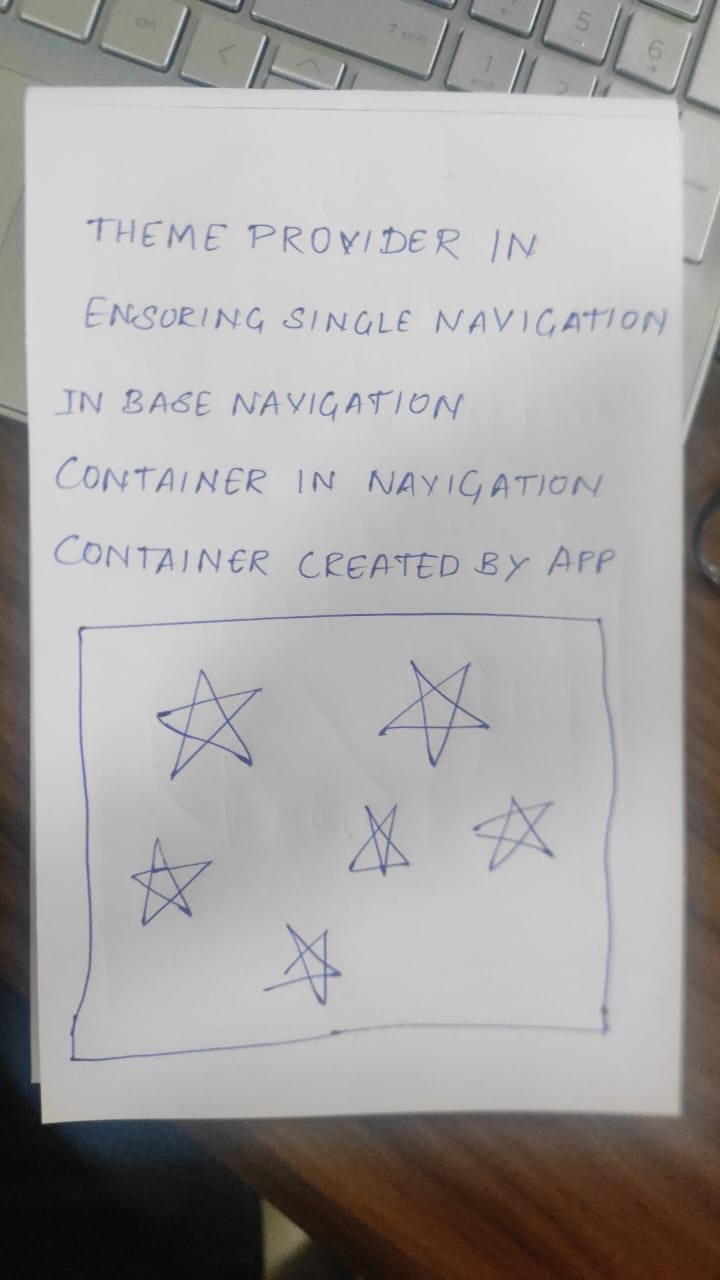 ctrl
<
^
⇧ shift
5
6
1
2
THEME PROVIDER IN
ENSURING SINGLE NAVIGATION
IN BASE NAVIGATION
CONTAINER IN NAVIGATION
CONTAINER CREATED BY APP